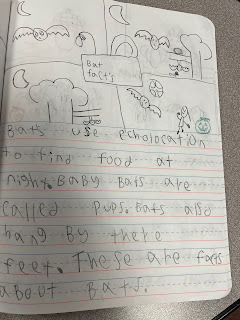 Bat
facts
Bats use echolocation
to find food at
night. BaBy Bats are
called pups. Bats also
hang By there
feet. These are facts
aBout Bats.